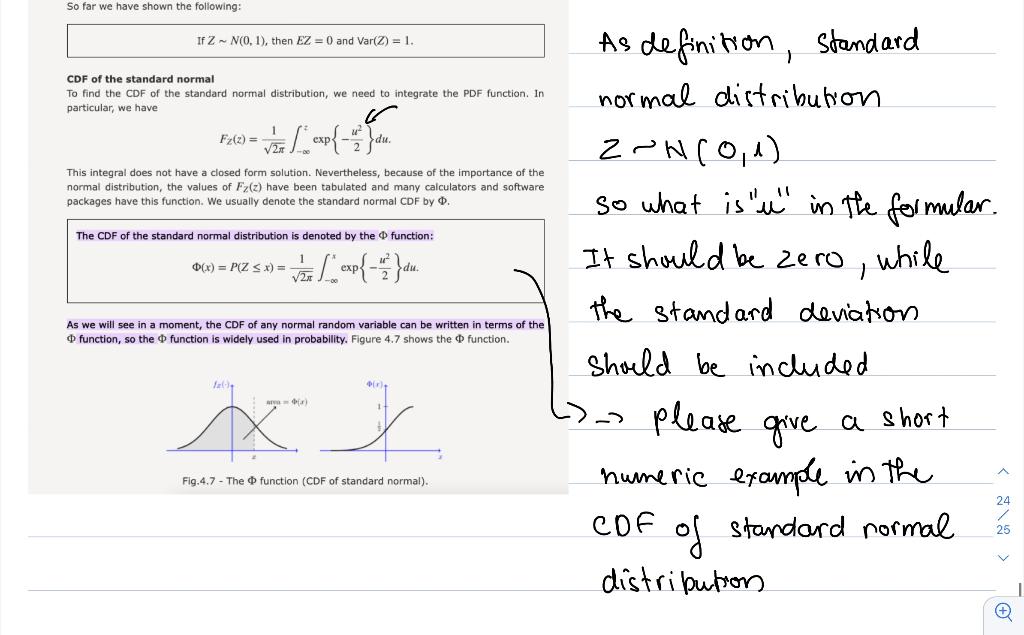 So far we have shown the following:
If Z ∼ N(0, 1), then EZ = 0 and Var(Z) = 1.
CDF of the standard normal
To find the CDF of the standard normal distribution, we need to integrate the PDF function. In
particular, we have
F_Z(z) = 1/√2π ∫_{−∞}^{z} exp{−u²/2}du.
This integral does not have a closed form solution. Nevertheless, because of the importance of the
normal distribution, the values of F_Z(z) have been tabulated and many calculators and software
packages have this function. We usually denote the standard normal CDF by Φ.
The CDF of the standard normal distribution is denoted by the Φ function:
Φ(x) = P(Z ≤ x) = 1/√2π ∫_{−∞}^{x} exp{−u²/2}du.
As we will see in a moment, the CDF of any normal random variable can be written in terms of the
Φ function, so the Φ function is widely used in probability. Figure 4.7 shows the Φ function.
f_Z(·)
area = Φ(x)
x
Φ(x)
1
1/2
x
Fig.4.7 - The Φ function (CDF of standard normal).
As definition, standard
normal distribution
Z ~ N(0,1)
so what is "u" in the formular.
It should be zero, while
the standard deviation
should be included
-> please give a short
numeric example in the
CDF of standard normal
distribution
24
25